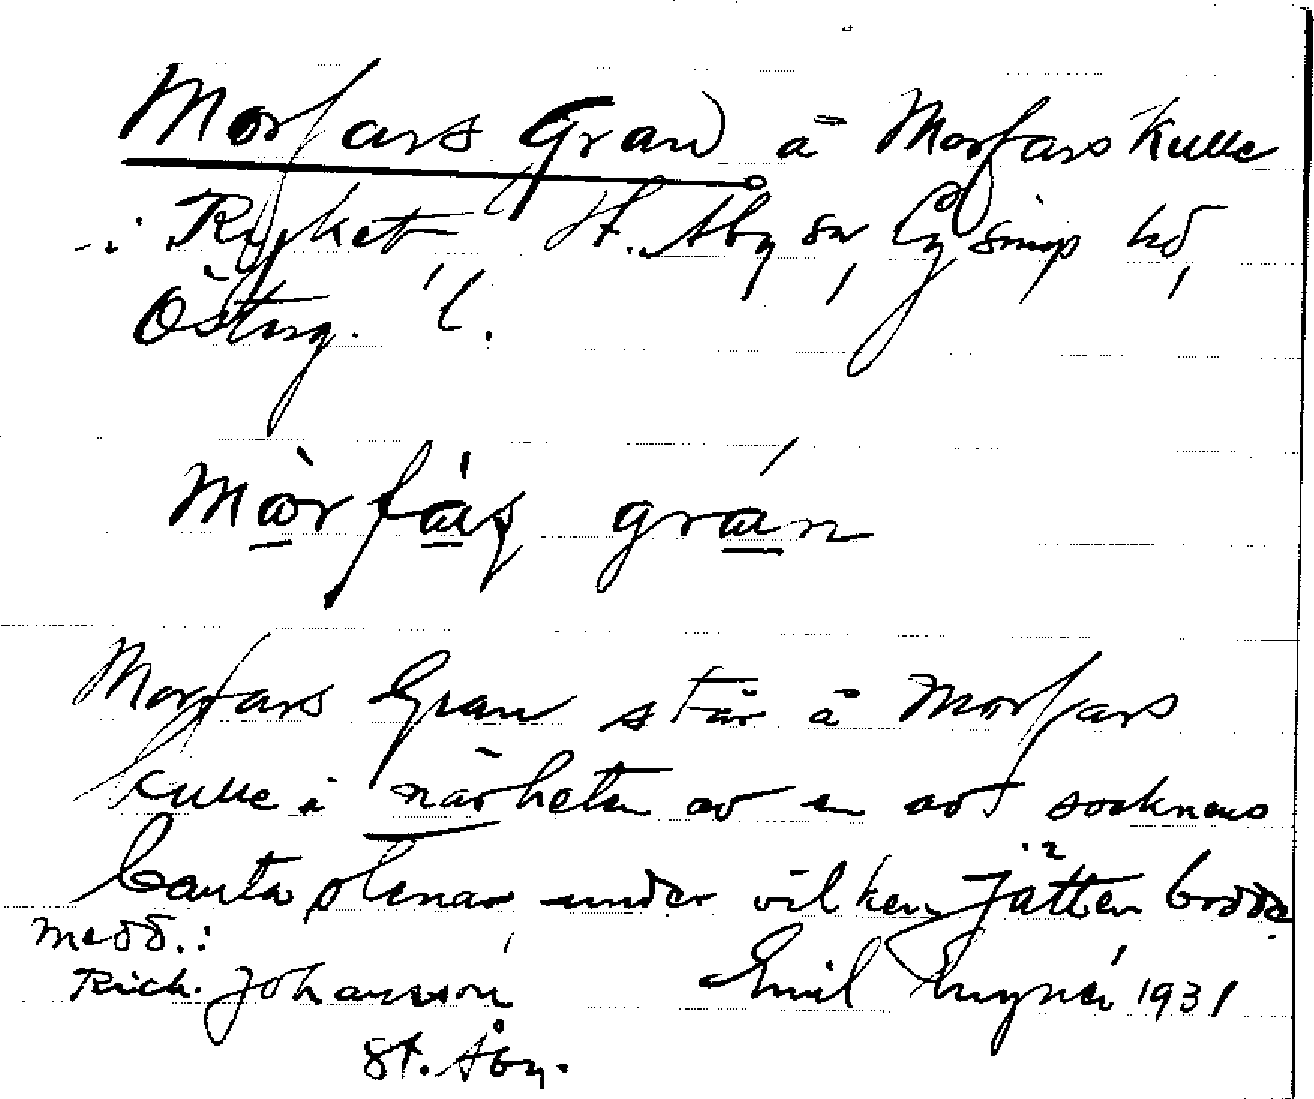 Morfars Gran å Morfars Kulle
i Ryket St. Åby sn, Lysings hd,
Österg. l.
mòrfàṣ grán
Morfars Gran står å Morfars
kulle i närheten av en av socknens
bautastenar under vilken Jätten bodde.
Medd.:
Rich. Johansson Emil 1931
St. Åby.